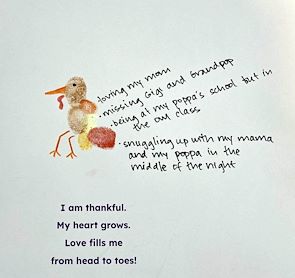 ·loving my mom
·missing Gigi and Grandpop
·being at my poppa's school but in
the owl class
·snuggling up with my mama
and my poppa in the
middle of the night
I am thankful.
My heart grows.
Love fills me
from head to toes!